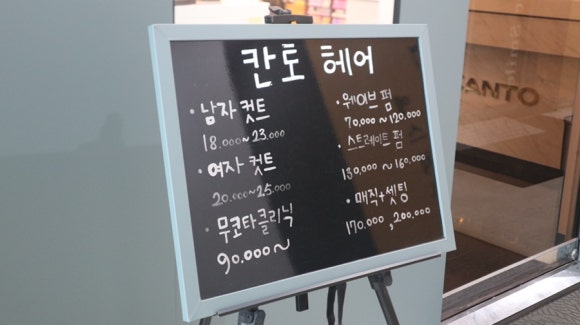 칸토 헤어
· 남자 컷트
18.000~23.000
· 여자 컷트
20.000~25.000
· 무코타클리닉
90.000~
· 웨이브 펌
70.000~120.000
· 스트레이트 펌
130.000~160.000
· 매직+셋팅
170.000, 200.000
CANTO